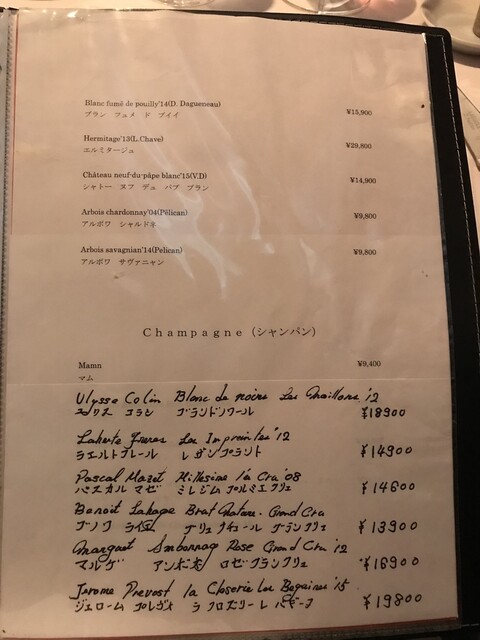 Blanc fumé de pouilly'14(D. Dagueneau)
ブラン　フュメ　ド　プイイ
¥15,900
Hermitage'13(L.Chave)
エルミタージュ
¥29,800
Château neuf-du-pâpe blanc'15(V.D)
シャトー　ヌフ　デュ　パプ　ブラン
¥14,900
Arbois chardonnay'04(Pélican)
アルボワ　シャルドネ
¥9,800
Arbois savagnian'14(Pelican)
アルボワ　サヴァニャン
¥9,800
Champagne (シャンパン)
Mamn
マム
¥9,400
Ulysse Colin Blanc de noirs Les Maillons '12
コラン ブランドノワール
¥18900
Laherte Freres Les Empreintes '12
ラエルトフレール
¥14900
Pascal Mazet Millesime 1er Cru '08
パスカル マゼ ミレジム プルミエクリュ
¥14600
Benoit Lahaye Brut Nature Grand Cru
ブノワ ライエ ブリュ ナチュール グランクリュ
¥13900
Margaet Ambonnay Rose Grand Cru '12
マルゲ アンボネ ロゼ グランクリュ
¥16900
Jerome Prevost la Closerie Les Beguines '15
ジェローム プレヴォ ラ クロズリー レ ベギーヌ
¥19800